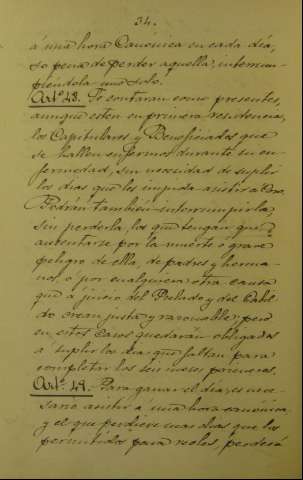 34.
á una hora Canónica en cada día,
so pena de perder aquella, interrum-
piéndola uno solo.
Artº 48. Se contarán como presentes,
aunque estén en su primera residencia,
los Capitulares y Beneficiados que
se hallen enfermos durante su en-
fermedad, sin necesidad de suplir
los días que les impida asistir a Coro.
Podrán también interrumpirla,
sin perderla, los que tengan que
ausentarse por la muerte ó grave
peligro de ella, de padres y herma-
nos, ó por cualquiera otra causa
que á juicio del Prelado y del Cabil-
do crean justa y razonable; pero
en estos casos quedarán obligados
á suplir los días que faltan para
completar los seis meses primeros.
Artº 49. Para ganar el día, es nece-
sario asistir á una hora canónica,
y el que perdiere mas días que los
permitidos para recles, perderá